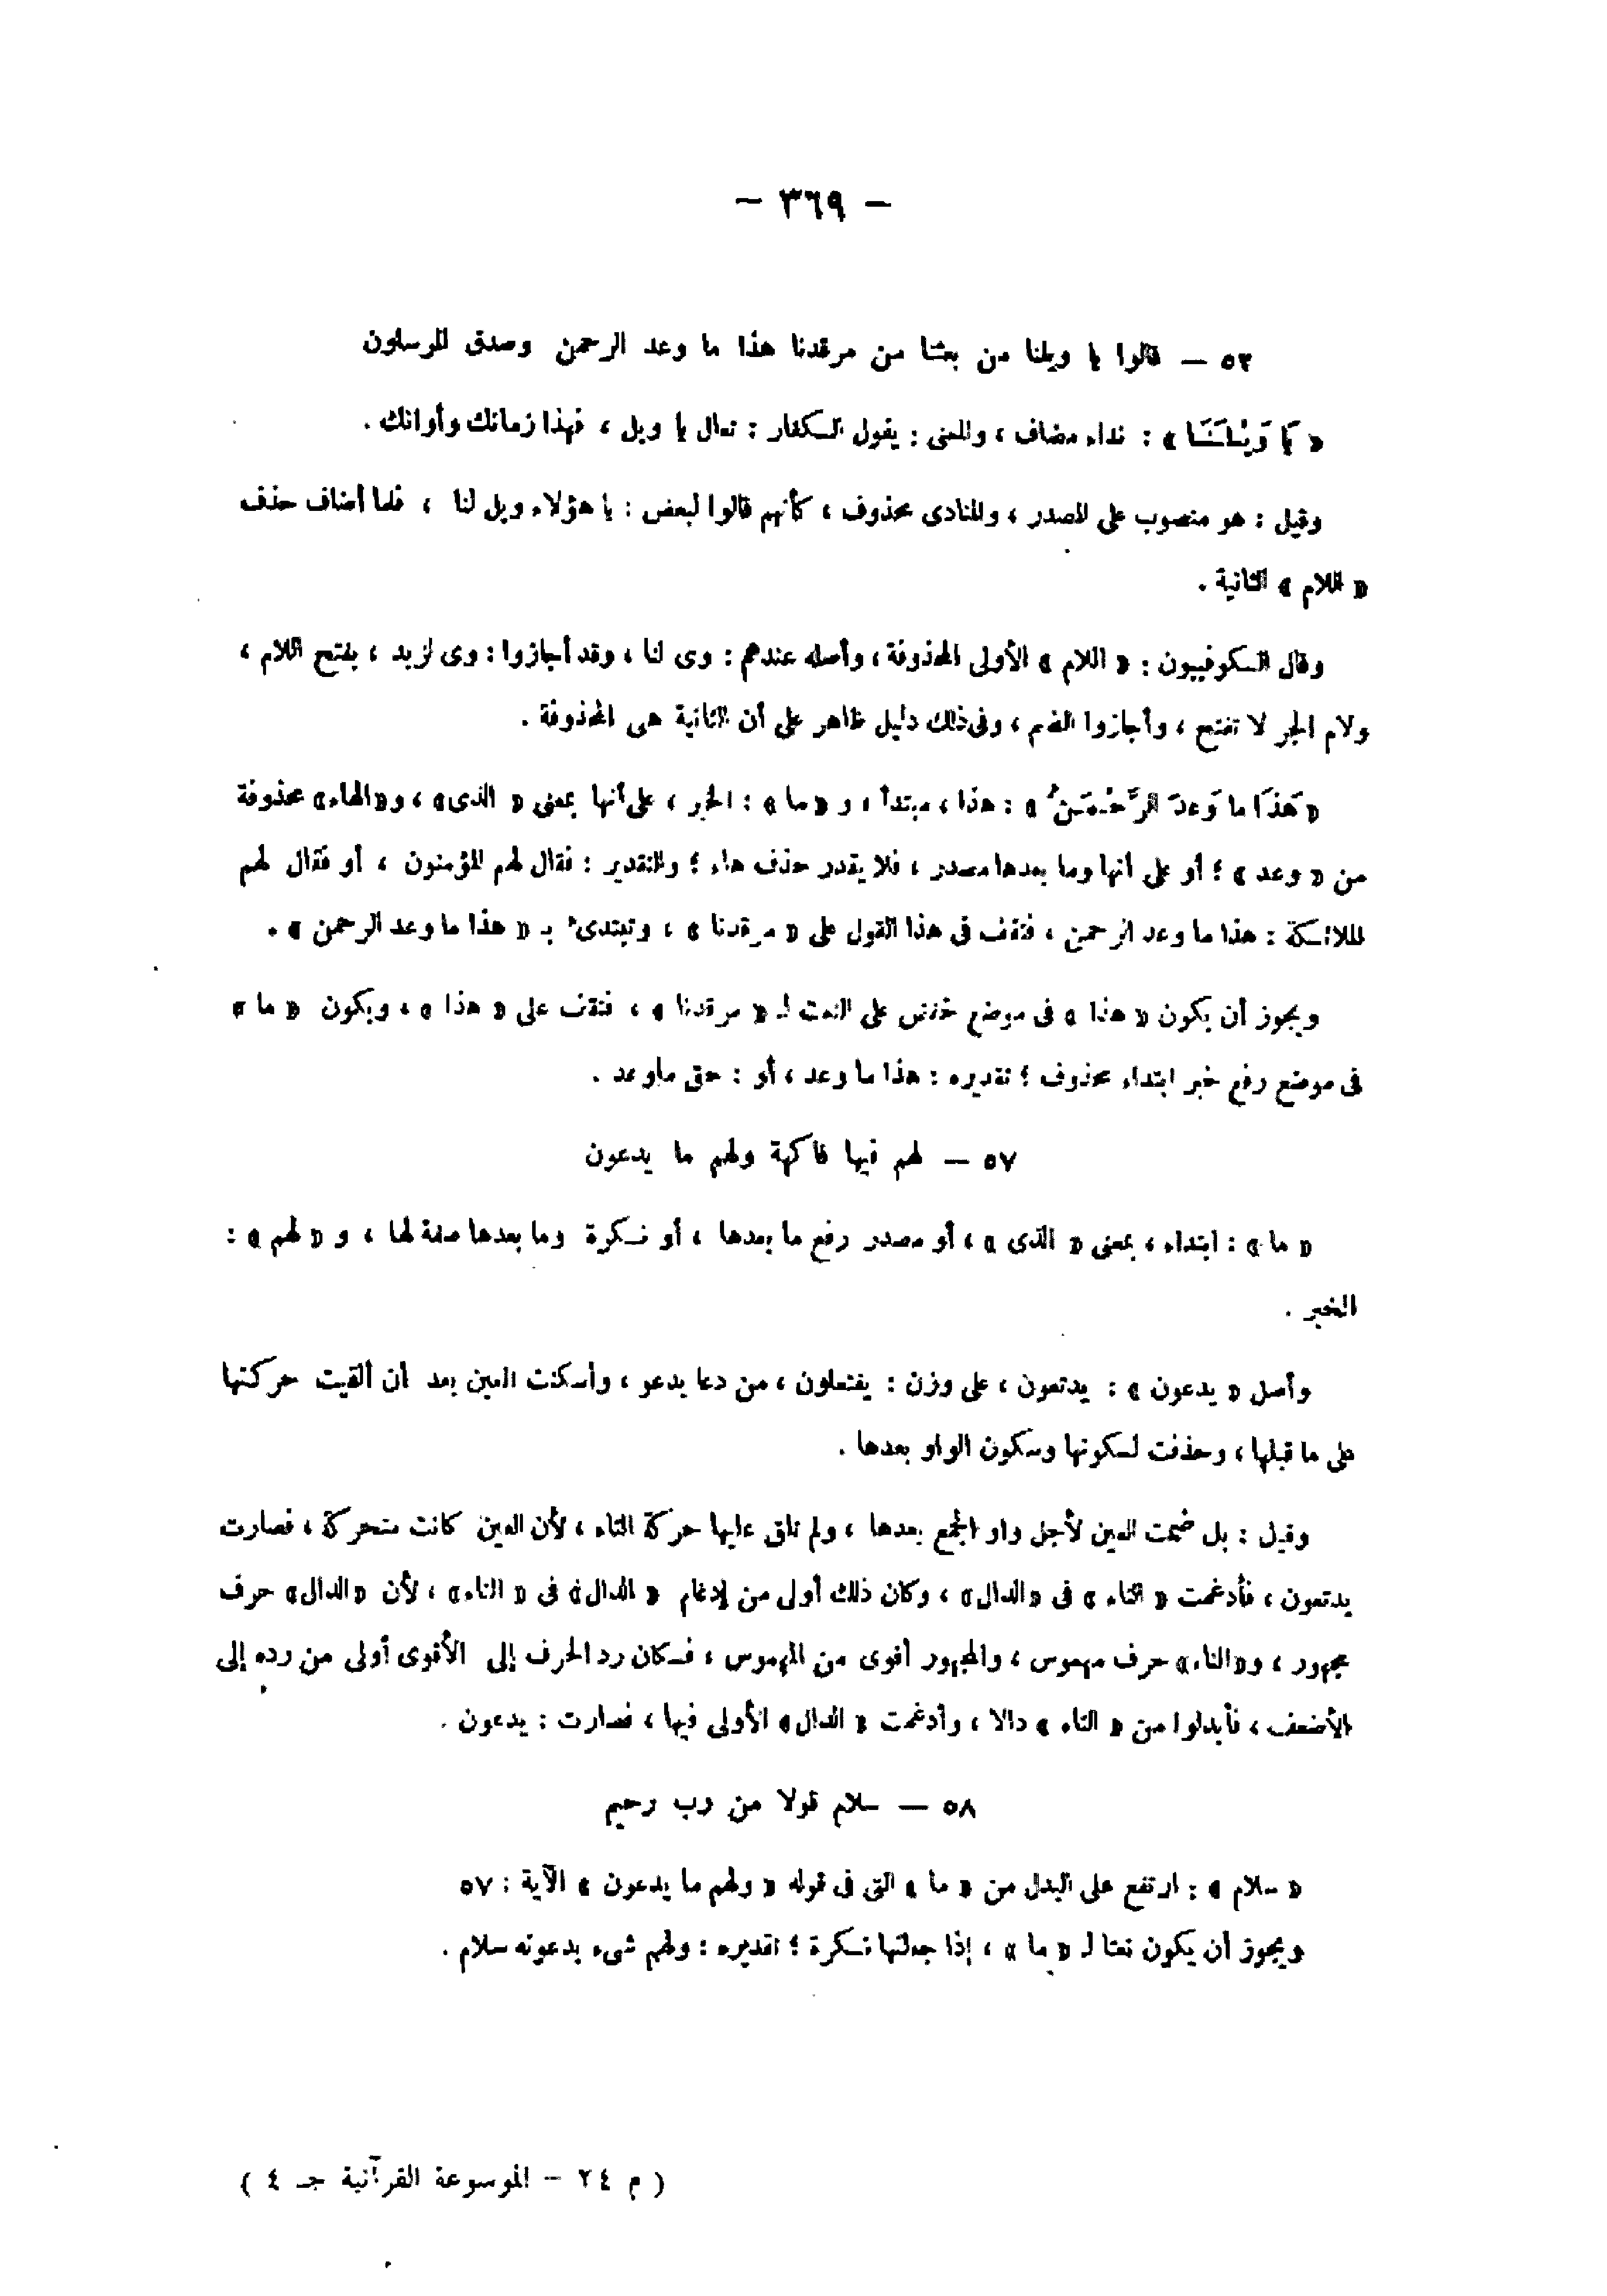 – ٣٦٩ –
٥٢ — قالوا يا ويلنا من بعثنا من مرقدنا هذا ما وعد الرحمن وصدق المرسلون
« يَا وَيْلَنَا » : نداء مضاف ، والمعنى : يقول الكفار : تعال يا ويل ، فهذا زمانك وأوانك .
وقيل : هو منصوب على المصدر ، والمنادى محذوف ، كأنهم قالوا لبعض : يا هؤلاء ويل لنا ، فلما أضاف حذف
« اللام » الثانية .
وقال الكوفيون : « اللام » الأولى المحذوفة ، وأصله عندهم : وى لنا ، وقد أجازوا : وى لزيد ، بفتح اللام ،
ولام الجر لا تفتح ، وأجازوا الضم ، وفى ذلك دليل ظاهر على أن الثانية هى المحذوفة .
« هَذَا ما وَعدَ الرَّحْمَنُ » : هذا ، مبتدأ ، و « ما » : الخبر ، على أنها بمعنى « الذى » ، و«الهاء» محذوفة
من « وعد » ؛ أو على أنها وما بعدها مصدر ، فلا يقدر حذف هاء ؛ والتقدير : فقال لهم المؤمنون ، أو فقال لهم
الملائكة : هذا ما وعد الرحمن ، فتقف فى هذا القول على « مرقدنا » ، وتبتدئ بـ « هذا ما وعد الرحمن » .
ويجوز أن يكون « هذا » فى موضع خفض على النعت لـ « مرقدنا » ، فتقف على « هذا » ، ويكون « ما »
فى موضع رفع خبر ابتداء محذوف ؛ تقديره : هذا ما وعد ، أو : حق ما وعد .
٥٧ — لهم فيها فاكهة ولهم ما يدعون
« ما » : ابتداء ، بمعنى « الذى » ، أو مصدر رفع ما بعدها ، أو نكرة وما بعدها صفة لها ، و « لهم » :
الخبر .
وأصل « يدعون » : يدتعون ، على وزن : يفتعلون ، من دعا يدعو ، وأسكنت العين بعد أن ألقيت حركتها
على ما قبلها ، وحذفت لسكونها وسكون الواو بعدها .
وقيل : بل ضمت العين لأجل واو الجمع بعدها ، ولم تلق عليها حركة التاء ، لأن العين كانت متحركة ، فصارت
يدتعون ، فأدغمت « التاء » فى «الدال» ، وكان ذلك أولى من إدغام « الدال» فى « التاء» ، لأن «الدال» حرف
مجهور ، و«التاء» حرف مهموس ، والمجهور أقوى من المهموس ، فكان رد الحرف إلى الأقوى أولى من رده إلى
الأضعف ، فأبدلوا من « التاء » دالا ، وأدغمت « الدال» الأولى فيها ، فصارت : يدعون .
٥٨ — سلام قولا من رب رحيم
« سلام » : ارتفع على البدل من « ما » التى فى قوله « ولهم ما يدعون » الآية : ٥٧
ويجوز أن يكون نعتا لـ « ما » ، إذا جعلتها نكرة ؛ تقديره : ولهم شىء يدعونه سلام .
( م ٢٤ – الموسوعة القرآنية جـ ٤ )